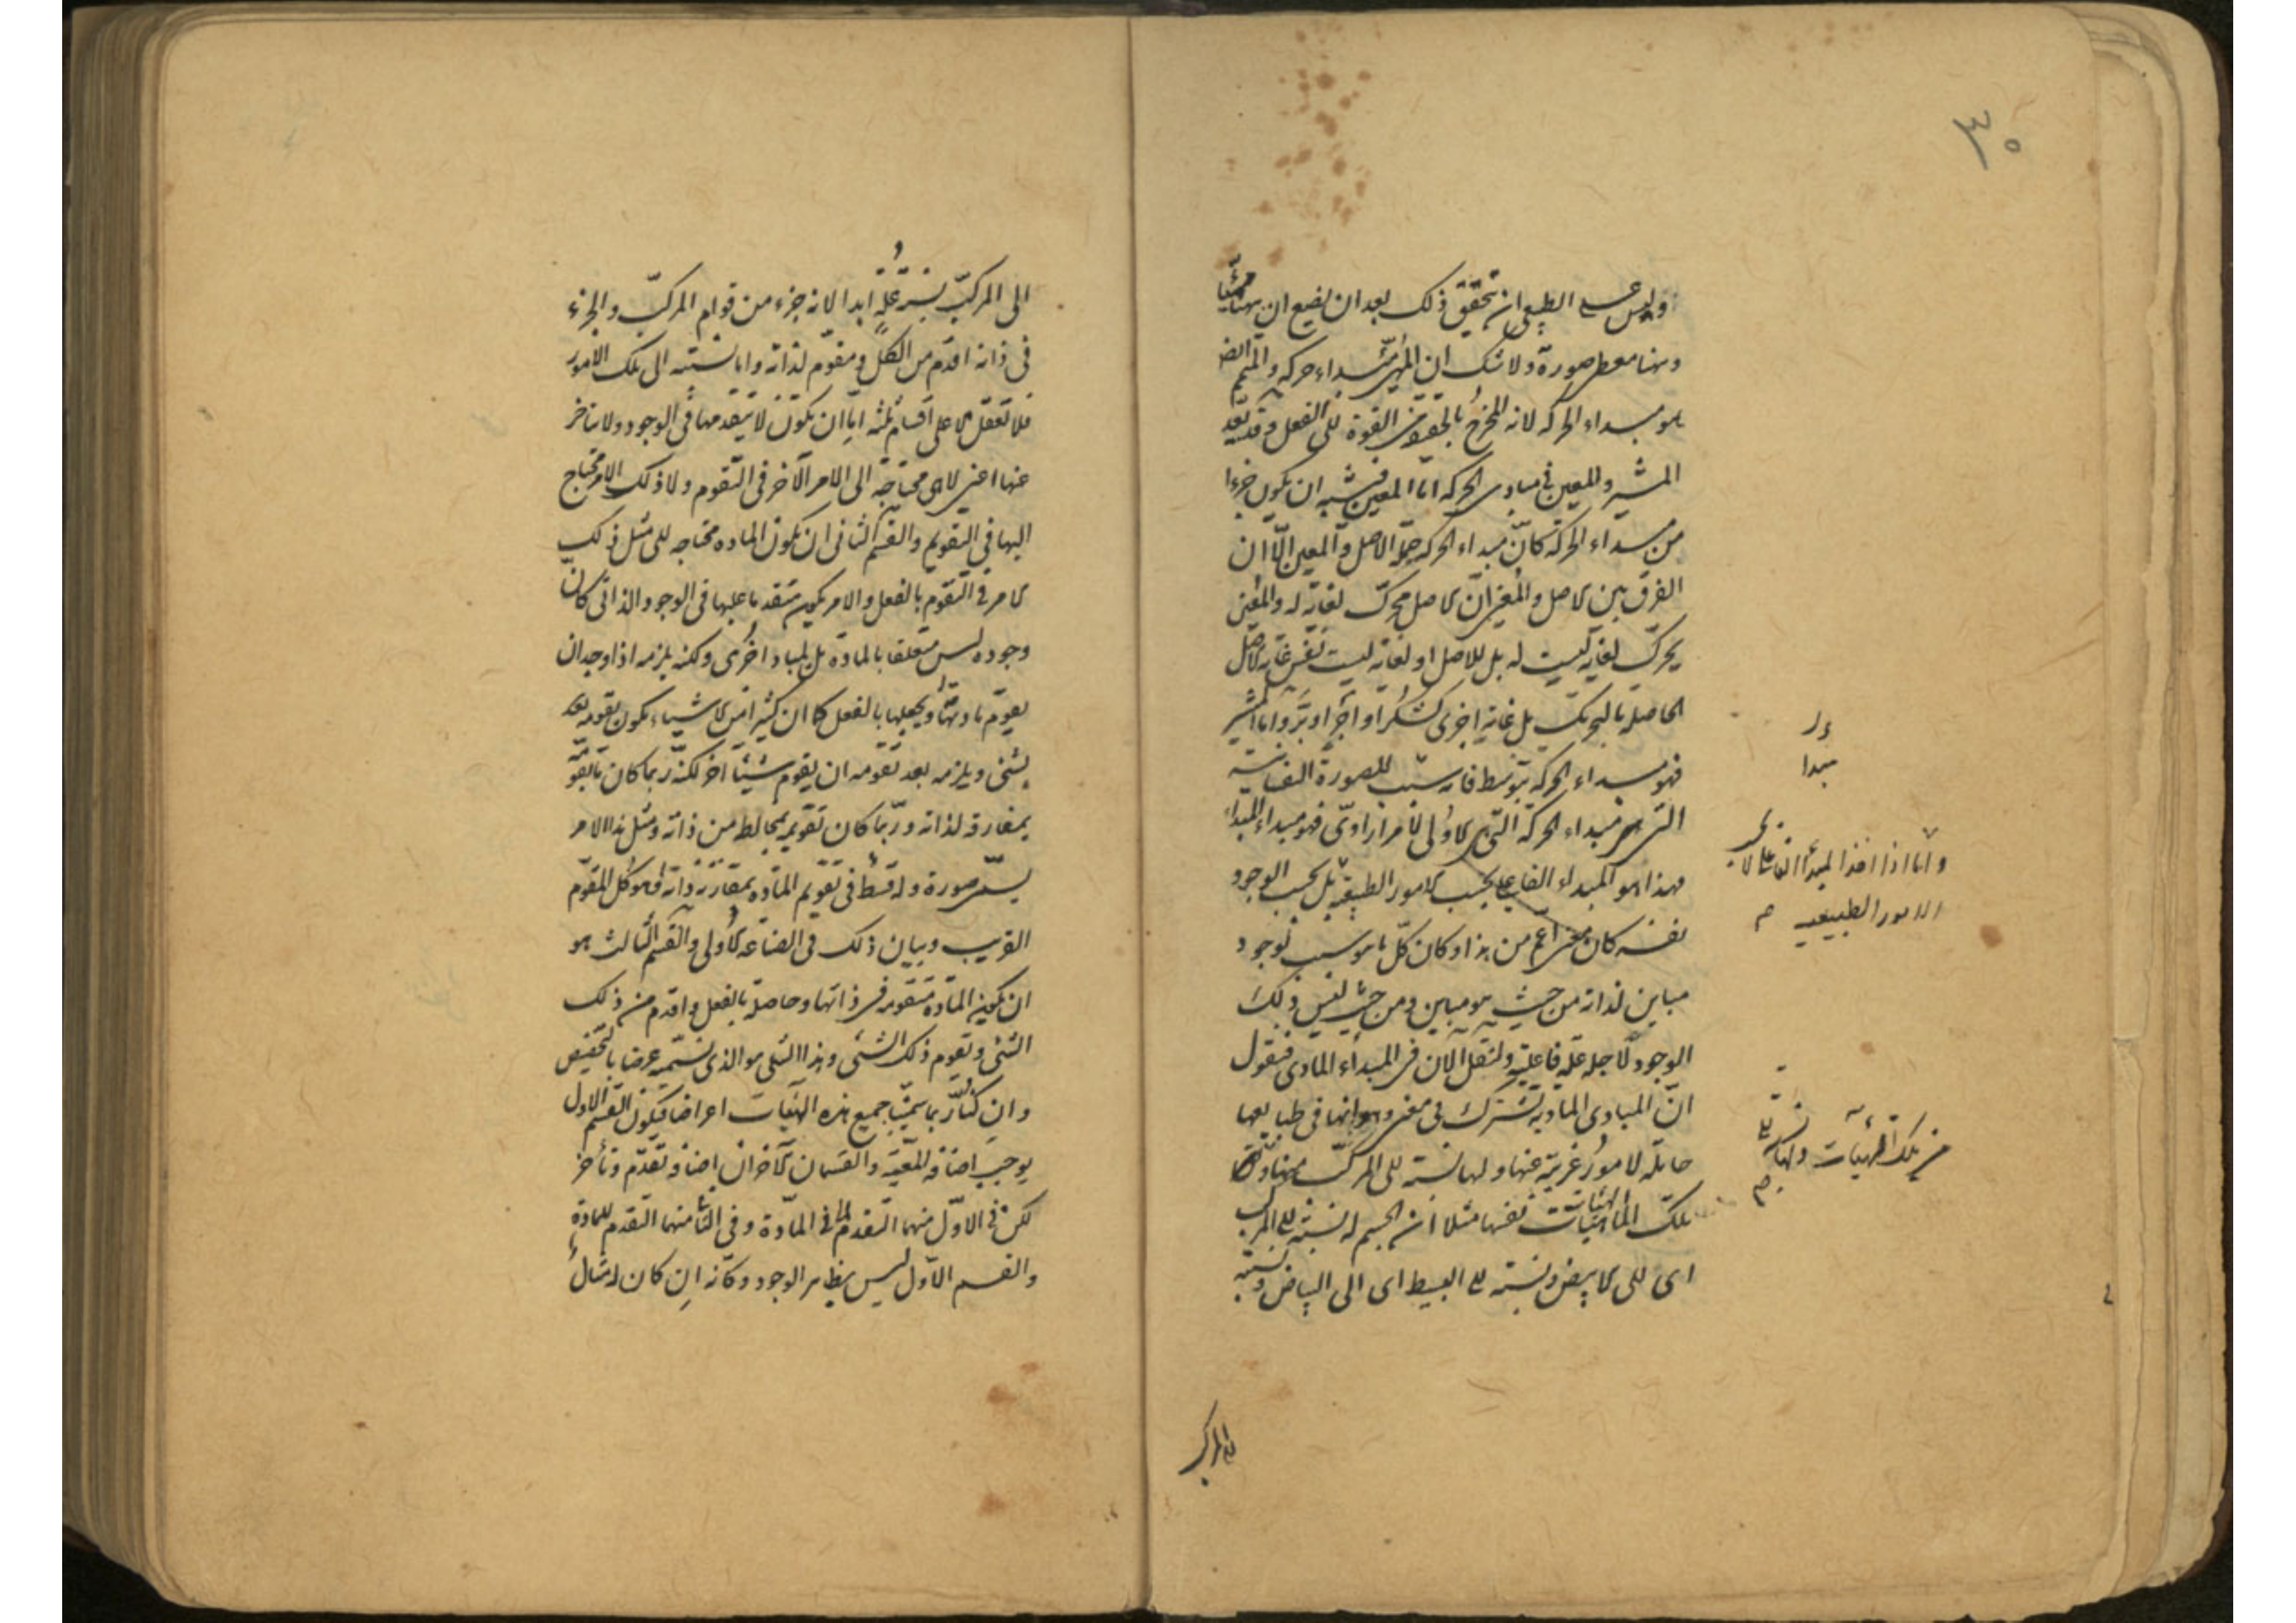 ٣٥
وليس على الطبيعى ان يتحقق ذلك بعد ان يضع ان ههنا مهيّئا
وههنا معطى صورة ولا شك ان المهيّئ مبداء حركه والمتمم ايضا
هو مبداء الحركه لانه المخرج بالحقيقه من القوة الى الفعل وقد يعد
المشير والمعين فى مبادى الحركه اما المعين فيشبه ان يكون جزءا
من مبداء الحركة كانّ مبداء الحركه جملة الاصل والمعين الّا ان
الفرق بين الاصل والمعين انّ الاصل يحرّك لغاية له والمعين
يحرّك لغاية ليست له بل للاصل او لغاية ليست نفس غاية الاصل
الحاصلة بالتحريك بل غاية اخرى كشكر او اجر او برّ واما المشير
فهو مبداء الحركه بتوسّط فانه سبب للصورة النفسانية
التى هى مبداء الحركه الاولى لامر ارادىّ فهو مبداء المبداء
فهذا هو المبداء الفاعلى بحسب الامور الطبيعية بل بحسب الوجود
نفسه كان معنى اعم من هذا وكان كلّ ما هو سبب لوجود
مباين لذاته من حيث هو مباين ومن حيث ليس ذلك
الوجود لاجله علّة فاعلية ولنقل الآن فى المبداء المادى فنقول
انّ المبادى المادية تشترك فى معنى وهو انها فى طبايعها
حاملة لامور غريبة عنها ولها نسبة الى المركّب منها ومن
تلك الهيئات نفسها مثلا ان الجسم له نسبة الى المركب
اى الى الابيض ونسبته الى البسيط اى الى البياض ونسبته
مبدا
واما اذا اخذ المبدأ الفاعلى لا بحسب
الامور الطبيعيه م
من تلك الهيئات ولها نسبة الى
الى المركب
الى المركّب نسبة علّة ابدا لانه جزء من قوام المركّب والجزء
فى ذاته اقدم من الكلّ ومقوّم لذاته واما نسبته الى تلك الامور
فلا تعقل الا على اقسام ثلثه اما ان يكون لا يتقدمها فى الوجود ولا يتاخر
عنها اعنى لا هى محتاجة الى الامر الآخر فى التقوم ولا ذلك الامر محتاج
اليها فى التقويم والقسم الثانى ان يكون المادة محتاجه الى مثل ذلك
الامر فى التقوم بالفعل والامر يكون متقدما عليها فى الوجود الذاتى كان
وجوده ليس متعلقا بالمادة بل بمباد اخرى ولكنه يلزمه اذا وجد ان
يقوّم مادتها ويجعلها بالفعل كما ان كثيرا من الاشياء يكون تقومه
بشئ ويلزمه بعد تقومه ان يقوم شيئا آخر لكنّه ربما كان ما يقومه
بمفارقة لذاته وربّما كان تقويمه بمخالط من ذاته ومثل هذا الامر
يسمّى صورة وله قسط فى تقويم المادّة بمقارنة ذاته وهو كل المقوّم
القريب وبيان ذلك فى الصناعه الاولى والقسم الثالث هو
ان يكون المادّة متقومة فى ذاتها وحاصلة بالفعل واقدم من ذلك
الشئ وتقوم ذلك الشئ وهذا الشئ هو الذى نسمّيه عرضا بالتخصيص
وان كنّا ربما سمّينا جميع هذه الهيئات اعراضا فيكون القسم الاول
يوجب اضافة المعيّة والقسمان الآخران اضافة تقدّم وتأخر
لكن فى الاوّل منهما التقدم لما فى المادّة وفى الثانى منهما التقدم للمادة
والقسم الاوّل ليس بظاهر الوجود وكأنّه ان كان له مثال